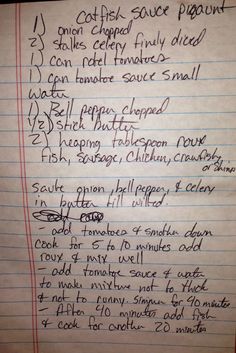 catfish sauce piquant
1) onion chopped
2) stalkes celery finely diced
1) can rotel tomatoes
1) can tomatoe sauce small
water
1) Bell pepper chopped
1/2) stick butter
2) heaping tablespoon roux
fish, sausage, chicken, crawfish,
or shrimp
saute onion, bell pepper, & celery
in butter till wilted.
- add tomatoes & smother down
cook for 5 to 10 minutes add
roux & mix well
- add tomatoe sauce & water
to make mixture not to thick
& not to runny. simmer for 40 minutes
- After 40 minutes add fish
& cook for another 20 minutes